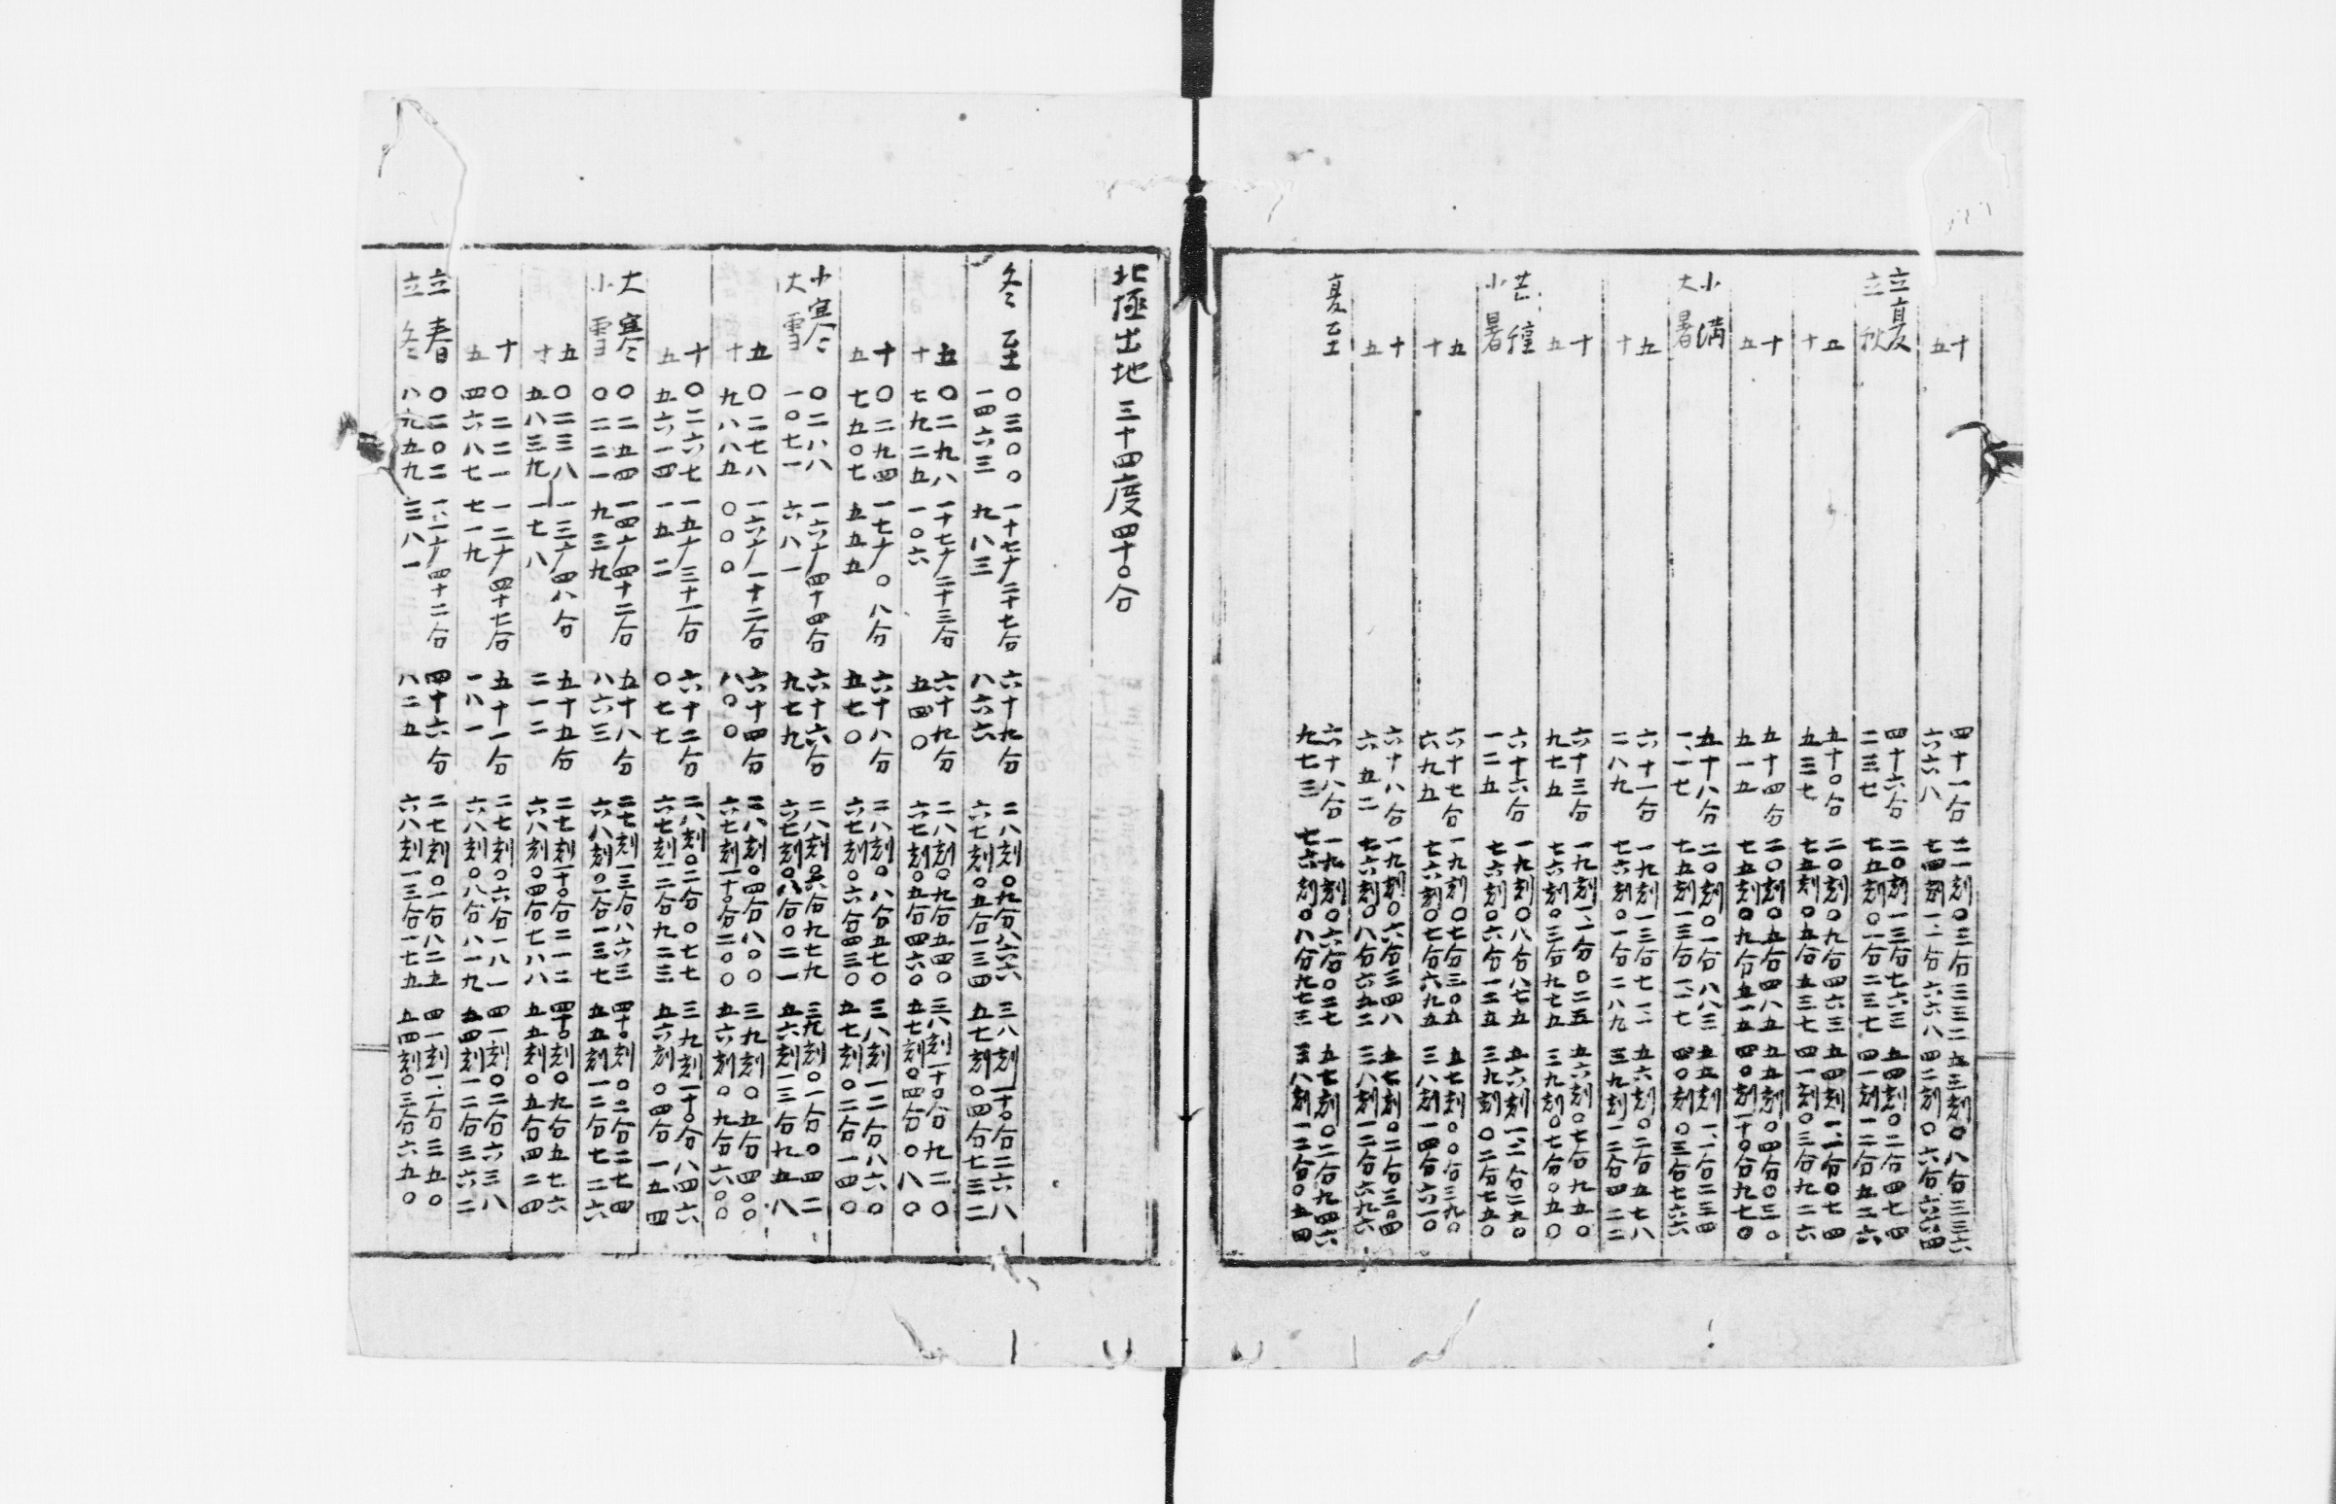 十 四十一分 二一刻〇三分三三二 五三刻〇八分三三六
五 六六八 七四刻一二分六六八 四二刻〇六分六六四
立夏 四十六分 二〇刻一三分七六三 五四刻〇二分四七四
立秋 二三七 七五刻〇一分二三七 四一刻一二分五二六
五 五十〇分 二〇刻〇九分四六三 五四刻一一分〇七四
十 五三七 七五刻〇五分五三七 四一刻〇三分九二六
十 五十四分 二〇刻〇五分四八五 五五刻〇四分〇三〇
五 五一五 七五刻〇九分五一五 四〇刻一十〇分九七〇
小滿 五十八分 二〇刻〇一分八八三 五五刻一一分二三四
大暑 一一七 七五刻一三分一一七 四〇刻〇三分七六六
五 六十一分 一九刻一三分七一一 五六刻〇二分五七八
十 二八九 七六刻〇一分二八九 三九刻一二分四二二
十 六十三分 一九刻一一分〇二五 五六刻〇七分九五〇
五 九七五 七六刻〇三分九七五 三九刻〇七分〇五〇
芒種 六十六分 一九刻〇八分八七五 五六刻一二分二五〇
小暑 一二五 七六刻〇六分一二五 三九刻〇二分七五〇
五 六十七分 一九刻〇七分三〇五 五七刻〇〇分三九〇
十 六九五 七六刻〇七分六九五 三八刻一四分六一〇
十 六十八分 一九刻〇六分三四八 五七刻〇二分三〇四
五 六五二 七六刻〇八分六五二 三八刻一二分六九六
夏至 六十八分 一九刻〇六分〇二七 五七刻〇二分九四六
九七三 七六刻〇八分九七三 三八刻一二分〇五四
北極出地 三十四度四十〇分
冬至 〇三〇〇 一十七度二十七分 六十九分 二八刻〇九分八六六 三八刻一十〇分二六八
一四六三 九八三 八六六 六七刻〇五分一三四 五七刻〇四分七三二
五 〇二九八 一十七度二十三分 六十九分 二八刻〇九分五四〇 三八刻一十〇分九二〇
十 七九二五 一〇六 五四〇 六七刻〇五分四六〇 五七刻〇四分〇八〇
十 〇二九四 一七度〇八分 六十八分 二八刻〇八分五七〇 三八刻一二分八六〇
五 七五〇七 五五五 五七〇 六七刻〇六分四三〇 五七刻〇二分一四〇
小寒 〇二八八 一六度四十四分 六十六分 二八刻〇六分九七九 三九刻〇一分〇四二
大雪 一〇七一 六八一 九七九 六七刻〇八分〇二一 五六刻一三分九五八
五 〇二七八 一六度一十二分 六十四分 二八刻〇四分八〇〇 三九刻〇五分四〇〇
十 九八八五 〇〇〇 八〇〇 六七刻一十〇分二〇〇 五六刻〇九分六〇〇
十 〇二六七 一五度三十一分 六十二分 二八刻〇二分〇七七 三九刻一十〇分八四六
五 五六一四 一五二 〇七七 六七刻一二分九二三 五六刻〇四分一五四
大寒 〇二五四 一四度四十二分 五十八分 二七刻一三分八六三 四十〇刻〇二分二七四
小雪 〇二二一 九三九 八六三 六八刻〇一分一三七 五五刻一二分七二六
五 〇二三八 一三度四八分 五十五分 二七刻一十〇分二一二 四十〇刻〇九分五七六
十 五八三九 一七八 二一二 六八刻〇四分七八八 五五刻〇五分四二四
十 〇二二一 一二度四十七分 五十一分 二七刻〇六分一八一 四一刻〇二分六三八
五 四六八七 七一九 一八一 六八刻〇八分八一九 五四刻一二分三六二
立春 〇二〇二 一一度四十二分 四十六分 二七刻〇一分八二五 四一刻一一分三五〇
立冬 八九五九 三八一 八二五 六八刻一三分一七五 五四刻〇三分六五〇